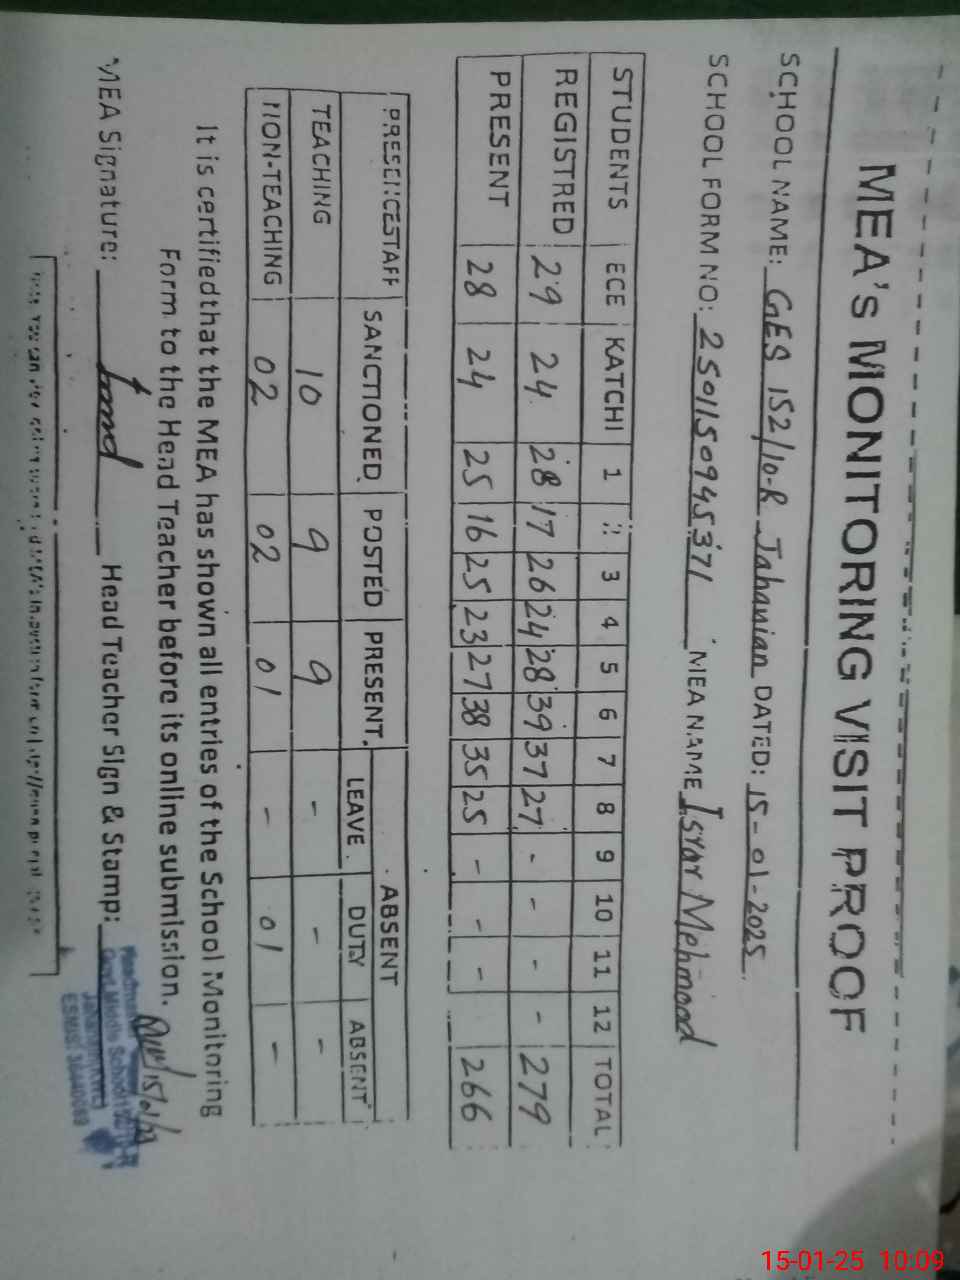 MEA's MONITORING VISIT PROOF
SCHOOL NAME: GES 152/10-R Jahanian DATED: 15-01-2025
SCHOOL FORM NO: 2501150945371 MEA NAME Israr Mehmood
STUDENTS ECE KATCHI 1 2 3 4 5 6 7 8 9 10 11 12 TOTAL
REGISTRED 29 24 28 17 26 24 28 39 37 27 - - - - 279
PRESENT 28 24 25 16 25 23 27 38 35 25 - - - 266
PRESENCESTAFF SANCTIONED POSTED PRESENT ABSENT
LEAVE DUTY ABSENT
TEACHING 10 9 9 - - -
NON-TEACHING 02 02 01 - 01 -
It is certified that the MEA has shown all entries of the School Monitoring
Form to the Head Teacher before its online submission.
MEA Signature: Head Teacher Sign & Stamp:
Govt Middle School
15-01-25 10:09